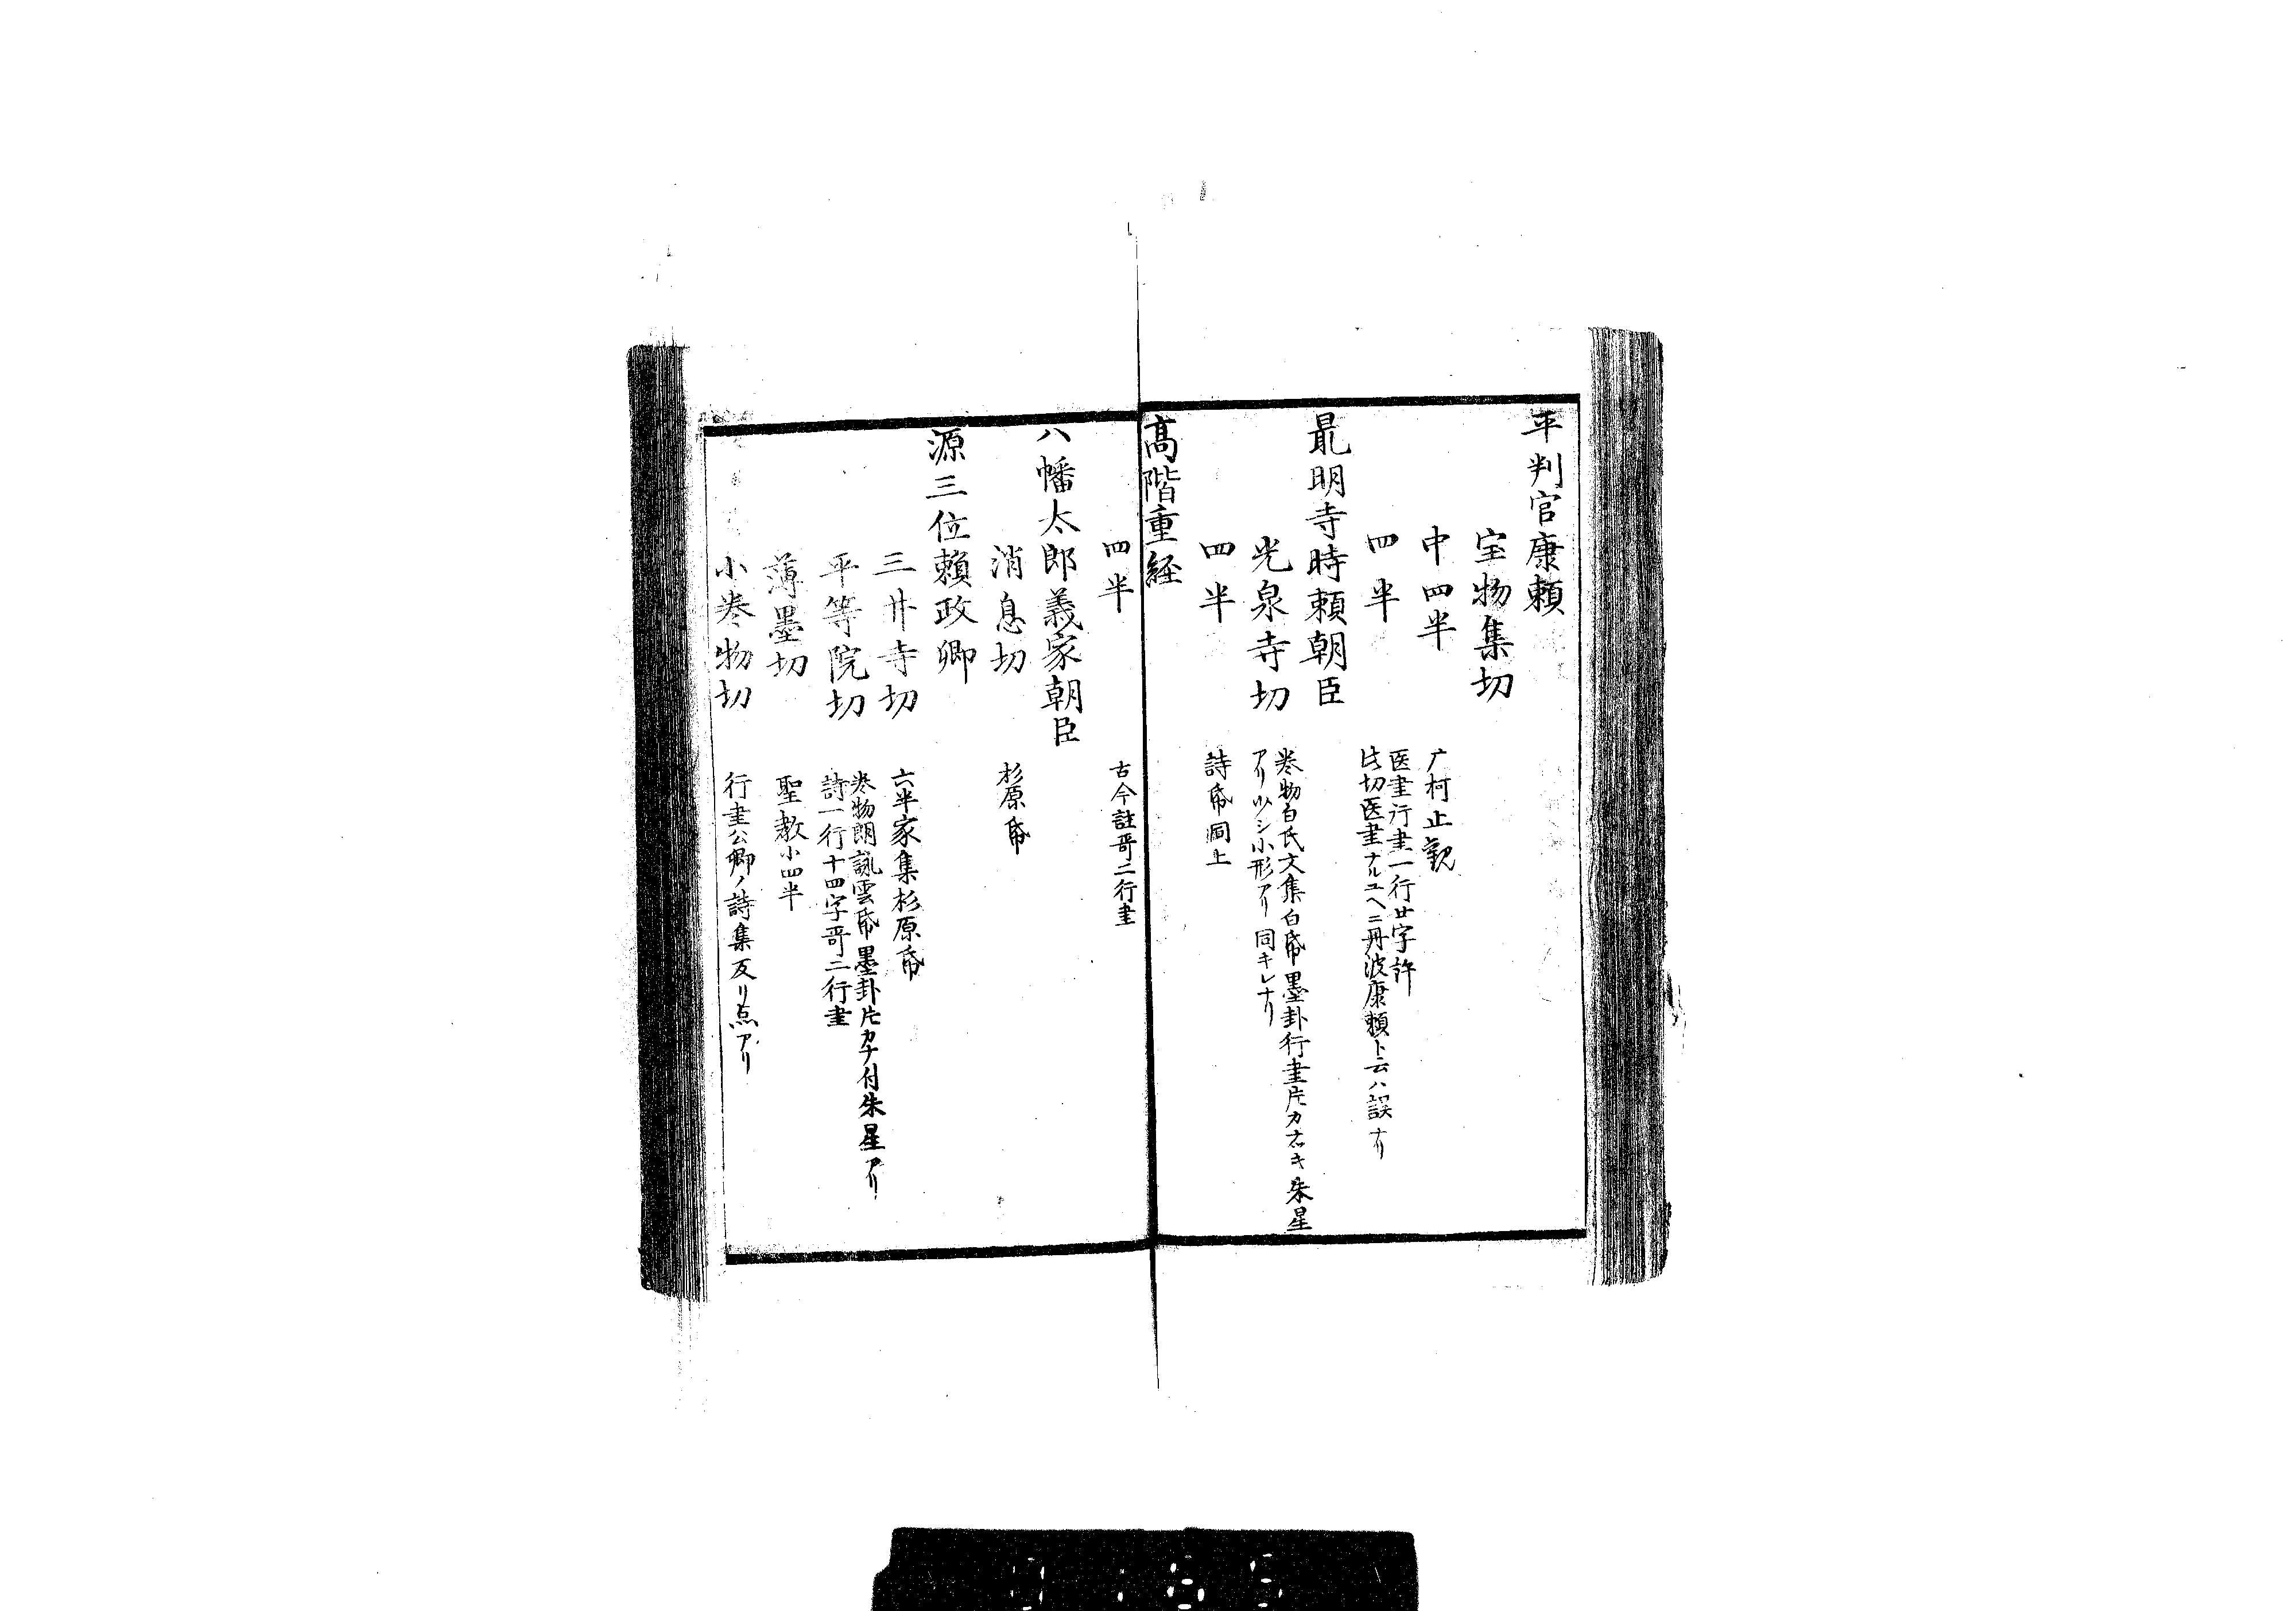 平判官康頼
宝物集切
中四半 广柯止観
四半 医書行書一行廿字許
此切医書ナルユヘニ丹波康頼ト云ハ誤ナリ
最明寺時頼朝臣
光泉寺切 巻物白氏文集白帋墨卦行書片カナ 朱星
アリ少シ小形アリ同キレナリ
四半 詩帋同上
高階重経
四半 古今註哥二行書
八幡太郎義家朝臣
消息切 杉原帋
源三位頼政卿
三井寺切 六半家集杉原帋
平等院切 巻物朗詠雲帋墨卦片カナ付朱星アリ
詩一行十四字哥二行書
薄墨切 聖教小四半
小巻物切 行書公卿ノ詩集反リ点アリ